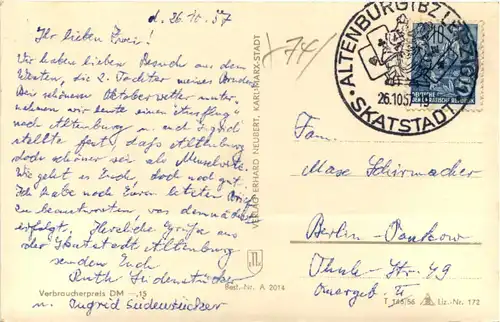 d. 26.10.57
Ihr lieben Zwei!
Wir haben lieben Besuch aus dem
Westen, die 2. Tochter meines Bruders.
Bei schönem Oktoberwetter unter-
nehmen wir heute einen Ausflug
nach Altenburg u. auch Ingrid
stellte fest, daß Altenburg
doch schöner sei als
Wie geht es Euch, doch noch gut.
Ich habe noch Euren letzten Brief
zu beantworten, was demnächst
erfolgt. Herzliche Grüße aus
der Skatstadt Altenburg
senden Euch
Ruth Südenstücker
u. Ingrid Südenstücker
Verbraucherpreis DM —.15
Best.-Nr. A 2014
VERLAG ERHARD NEUBERT, KARL-MARX-STADT
74
ALTENBURG (BZ LEIPZIG)
26.10.57
SKATSTADT
10
DEUTSCHE
DEMOKRATISCHE REPUBLIK
Fam.
Max Schirmacher
Berlin-Pankow
Thule-Str. 49
Quergeb. II
T 165/56
Liz.-Nr. 172